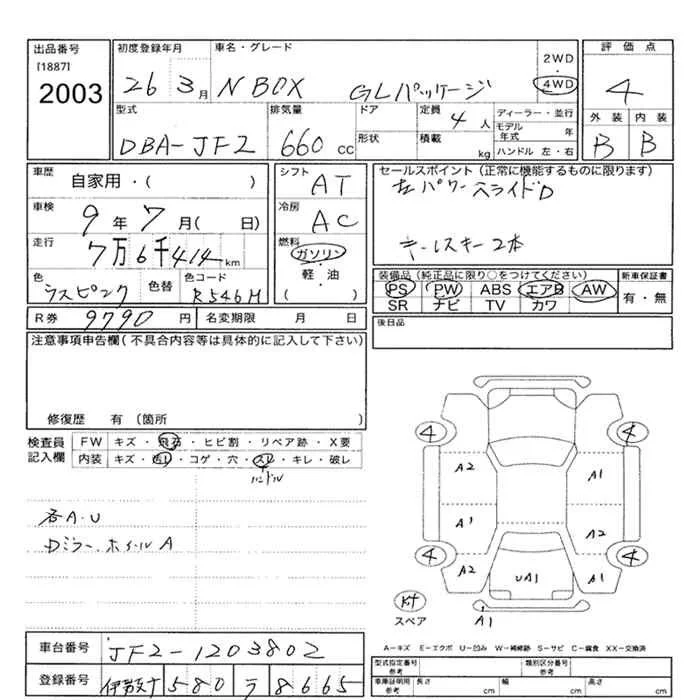 出品番号 初度登録年月 車名・グレード 評価点
[1887]
2003 26 3月 N BOX GLパッケージ 2WD 4WD 4
型式 排気量 ドア 定員 4人 ディーラー・並行 外装 内装
DBA-JF2 660 cc 形状 積載 kg モデル年式 年 B B
ハンドル 左・右
車歴 自家用・( ) シフト AT セールスポイント(正常に機能するものに限ります)
左パワースライドD
車検 9年 7月( 日) 冷房 AC
走行 7万6千414km 燃料 ガソリン キーレスキー2本
・軽・油 ( )
色 ラスピンク 色替 色コード R546M
装備品(純正品に限り○をつけてください) 新車保証書
PS PW ABS エアB AW 有・無
SR ナビ TV カワ
R券 9790円 名変期限 月 日
後日品
注意事項申告欄(不具合内容等は具体的に記入して下さい)
修復歴 有 (箇所 )
検査員記入欄 FW キズ・飛石・ヒビ割・リペア跡・X要
内装 キズ・・コゲ・穴・スレ・キレ・破レ
ハンドル
各A.U
Dミラー.ホイールA
4 4
A2 A1
A1 A2
4 4
A2 UA1 A1
スペア A1
A-キズ E-エクボ U-凹み W-補修跡 S-サビ C-腐食 XX-交換済
車台番号 JF2-1203802
登録番号 580 8665
型式指定番号 参考 類別区分番号 参考
車庫証明用 参考 長さ cm 幅 cm 高さ cm